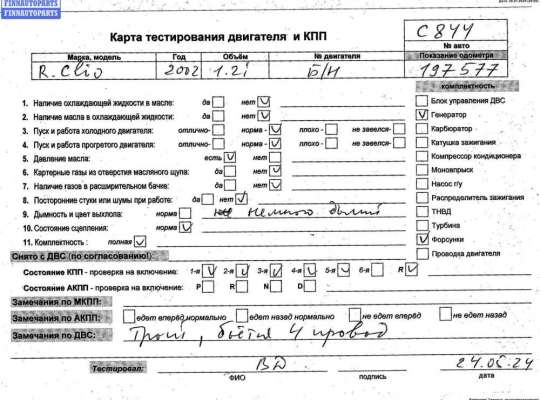 FINNAUTOPARTS
FINNAUTOPARTS
Карта тестирования двигателя и КПП
С844
№ авто
Марка, модель Год Объём № двигателя Показание одометра
R. Clio 2002 1.2i Б/Н 197577
комплектность
1. Наличие охлаждающей жидкости в масле: да нет
2. Наличие масла в охлаждающей жидкости: да нет
3. Пуск и работа холодного двигателя: отлично- норма - плохо - не завелся-
4. Пуск и работа прогретого двигателя: отлично- норма - плохо - не завелся-
5. Давление масла: есть нет
6. Картерные газы из отверстия масляного щупа: да нет
7. Наличие газов в расширительном бачке: да нет
8. Посторонние стуки или шумы при работе: да нет
9. Дымность и цвет выхлопа: норма немного дымит
10. Состояние сцепления: норма
11. Комплектность : полная
Блок управления ДВС
Генератор
Карбюратор
Катушка зажигания
Компрессор кондиционера
Моновпрыск
Насос г/у
Распределитель зажигания
ТНВД
Турбина
Форсунки
Проводка двигателя
Снято с ДВС (по согласованию!)
Состояние КПП - проверка на включение: 1-я 2-я 3-я 4-я 5-я 6-я R
Состояние АКПП - проверка на включение: P R N D
Замечания по МКПП:
Замечания по АКПП: едет вперёд нормально едет назад нормально не едет вперёд не едет назад
Замечания по ДВС: Троит, бьётся 4 провод
Тестировал: ВД 24.05.24
ФИО подпись дата